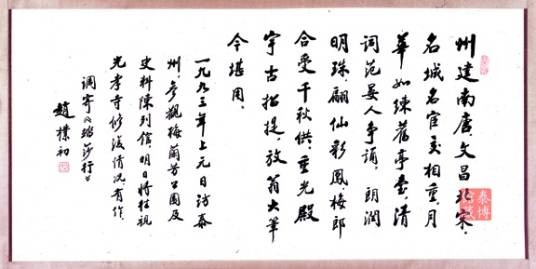 州建南唐,文昌北宋,
名城名宦交相重。月
華如練舊亭臺,清
詞范晏人爭誦。朗潤
明珠,翩仙彩鳳,梅郎
合受千秋供,重光殿
宇古招提,放翁大筆
今堪用。
一九九三年上元日訪泰
州,參觀梅蘭芳公園及
史料陳列館,明日將往視
光孝寺修復情況,有作
調寄《踏莎行》
趙樸初
泰博